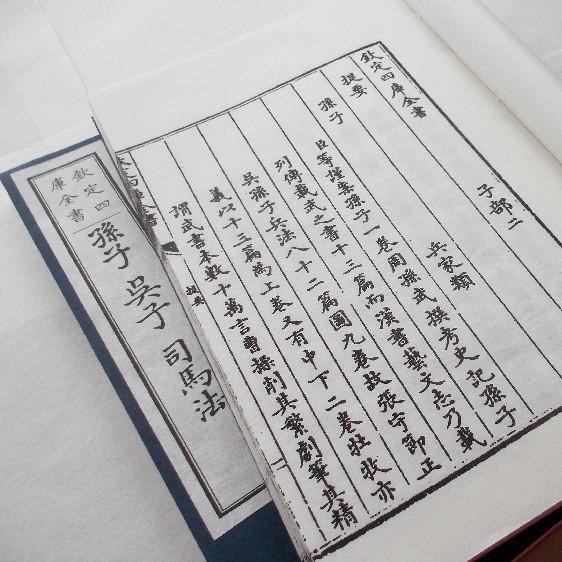 欽定四庫全書
子部二
提要
兵家類
孫子
臣等謹案孫子一卷周孫武撰考史記孫子
列傳載武之書十三篇而漢書藝文志乃載
吳孫子兵法八十二篇圖九卷故張守節正
義以十三篇為上卷又有中下二卷杜牧亦
謂武書本數十萬言曹操削其繁剰筆其精
提要
一
欽定四
庫全書
孫子 吳子 司馬法